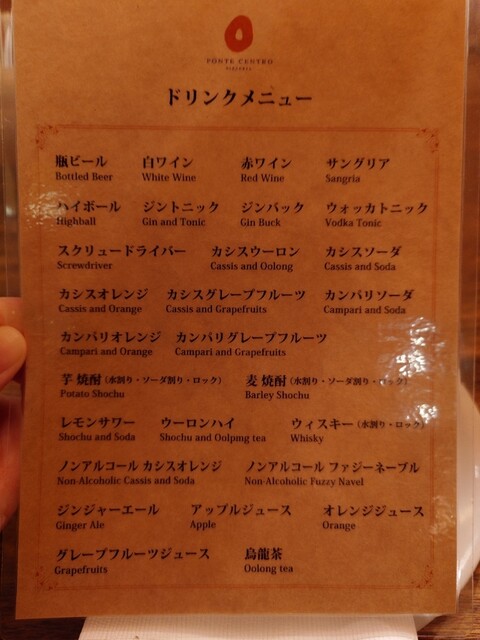 PONTE CENTRO
PIZZERIA
ドリンクメニュー
瓶ビール 白ワイン 赤ワイン サングリア
Bottled Beer White Wine Red Wine Sangria
ハイボール ジントニック ジンバック ウォッカトニック
Highball Gin and Tonic Gin Buck Vodka Tonic
スクリュードライバー カシスウーロン カシスソーダ
Screwdriver Cassis and Oolong Cassis and Soda
カシスオレンジ カシスグレープフルーツ カンパリソーダ
Cassis and Orange Cassis and Grapefruits Campari and Soda
カンパリオレンジ カンパリグレープフルーツ
Campari and Orange Campari and Grapefruits
芋 焼酎（水割り・ソーダ割り・ロック） 麦 焼酎（水割り・ソーダ割り・ロック）
Potato Shochu Barley Shochu
レモンサワー ウーロンハイ ウィスキー（水割り・ロック）
Shochu and Soda Shochu and Oolpmg tea Whisky
ノンアルコール カシスオレンジ ノンアルコール ファジーネーブル
Non-Alcoholic Cassis and Soda Non-Alcoholic Fuzzy Navel
ジンジャーエール アップルジュース オレンジジュース
Ginger Ale Apple Orange
グレープフルーツジュース 烏龍茶
Grapefruits Oolong tea